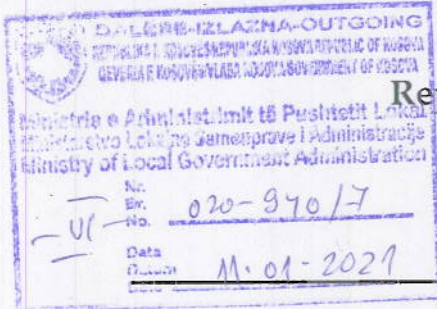 DALËRE-IZLAZNA-OUTGOING
REPUBLIKA E KOSOVËS/REPUBLIKA KOSOVA/REPUBLIC OF KOSOVA
QEVERIA E KOSOVËS/VLADA KOSOVA/GOVERNMENT OF KOSOVA
Re
Ministria e Administrimit të Pushtetit Lokal
Ministarstvo Lokalne Samouprave i Administracije
Ministry of Local Government Administration
Nr.
Br.
No. 020-940/7
-VI-
Data
Datum 11.01-2021
Date